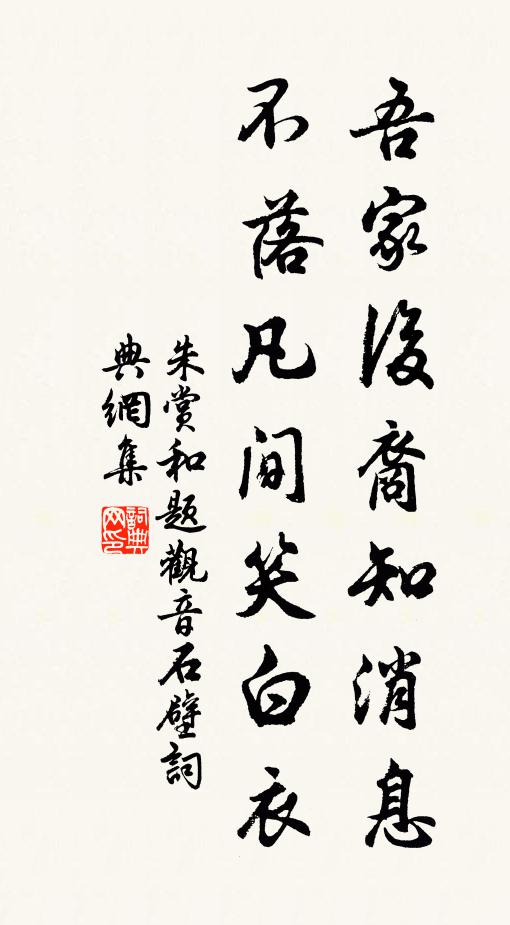 吾家後裔知消息
不落凡間笑白衣
朱賞和題觀音石壁詞
典網集
詞典
网印